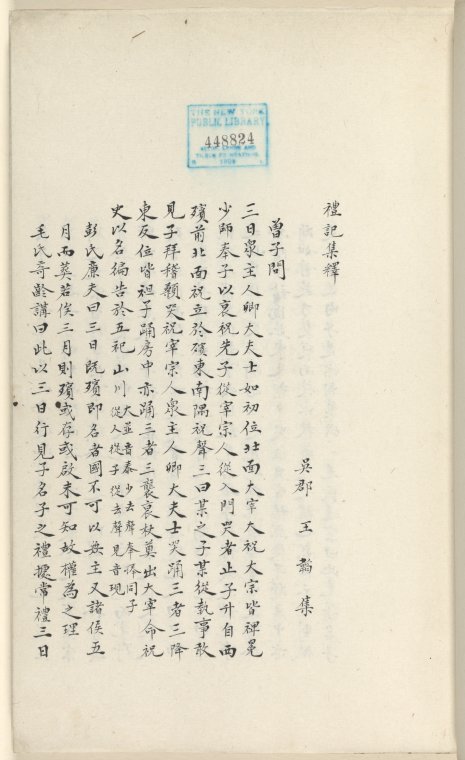 THE NEW YORK
PUBLIC LIBRARY
448824
ASTOR, LENOX AND
TILDEN FOUNDATIONS
禮記集釋
吳郡 王 集
曾子問
三日衆主人卿大夫士如初位北面大宰大祝大宗皆裨冕
少師奉子以衰祝先子從宰宗人從入門哭者止子升自西
殯前北面祝立於殯東南隅祝聲三曰某之子某從執事敢
見子拜稽顙哭祝宰宗人衆主人卿大夫士哭踊三者三降
東反位皆袒子踊房中亦踊三者三襲衰杖奠出大宰命祝
史以名編告於五祀山川
大並音泰少去聲奉捧同子
從人從子從去聲見音現
彭氏廉夫曰三日既殯即名者國不可以無主又諸侯五
月而葬若俟三月則殯或存或啟未可知故權為之理
毛氏奇齡講曰此以三日行見子名子之禮據常禮三日